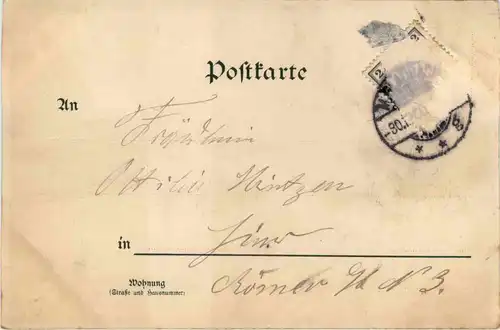 Postkarte
An
Fräulein
Ottilie Hintzen
in
Wohnung
(Straße und Hausnummer)
Römer N 3.
2
2
30.